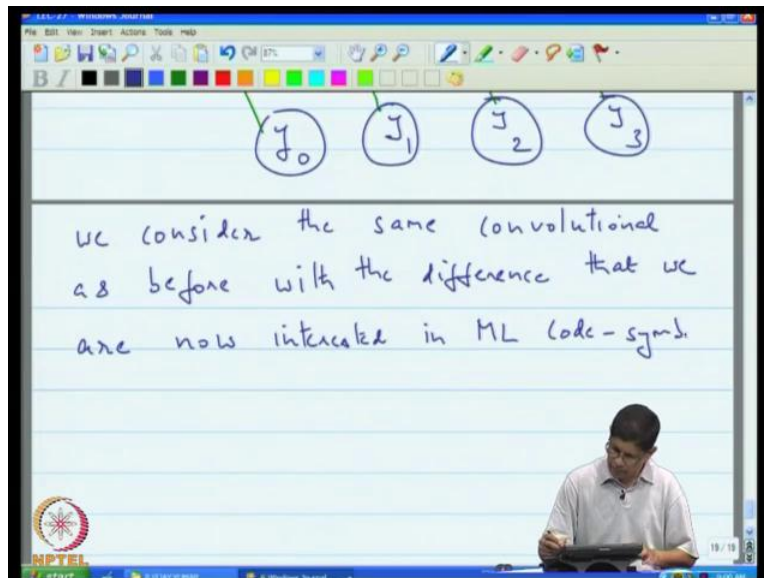 LEC-27 - Windows Journal
File Edit View Insert Actions Tools Help
87%
B I
y0 y1 y2 y3
we consider the same convolutional
as before with the difference that we
are now interested in ML code-symb.
19/19
NPTEL
start
Windows Journal